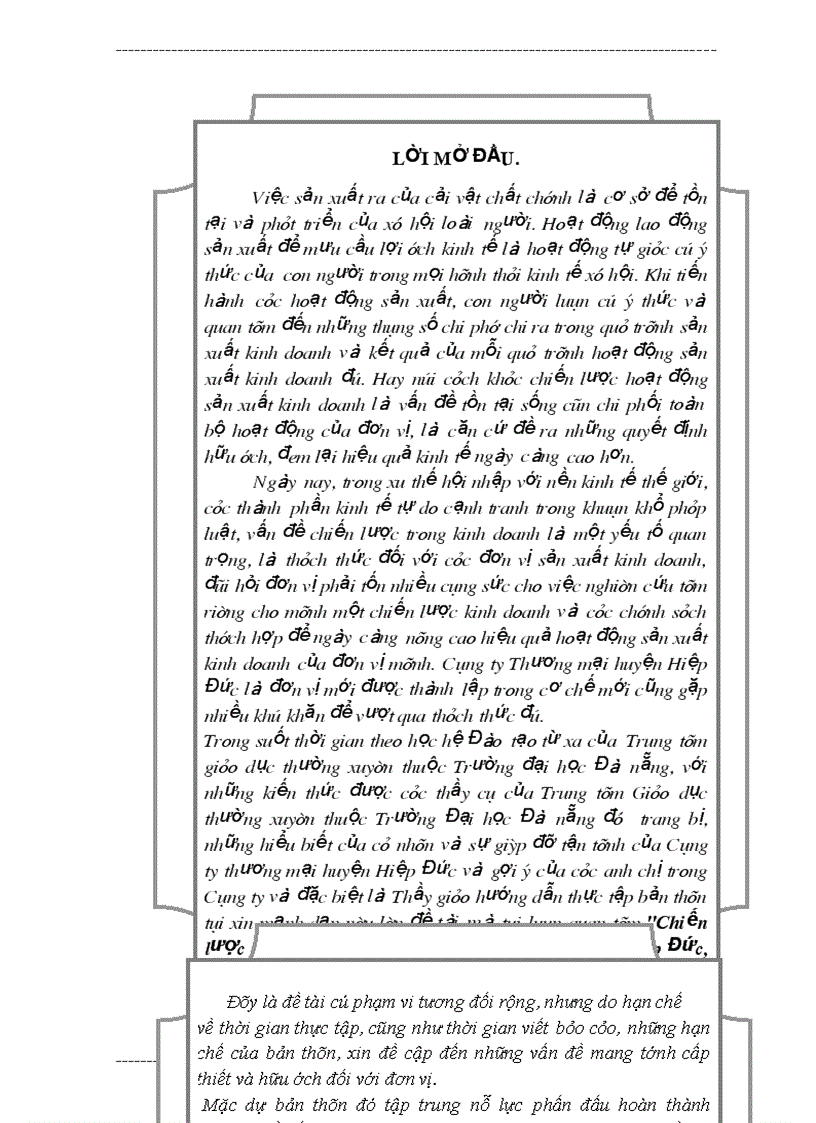 LỜI MỞ ĐẦU.
Việc sản xuất ra của cải vật chất chớnh là cơ sở để tồn
tại và phỏt triển của xó hội loài người. Hoạt động lao động
sản xuất để mưu cầu lợi ớch kinh tế là hoạt động tự giỏc cú ý
thức của con người trong mọi hỡnh thỏi kinh tế xó hội. Khi tiến
hành cỏc hoạt động sản xuất, con người luụn cú ý thức và
quan tõm đến những thụng số chi phớ chi ra trong quỏ trỡnh sản
xuất kinh doanh và kết quả của mỗi quỏ trỡnh hoạt động sản
xuất kinh doanh đú. Hay núi cỏch khỏc chiến lược hoạt động
sản xuất kinh doanh là vấn đề tồn tại sống cũn chi phối toàn
bộ hoạt động của đơn vị, là căn cứ đề ra những quyết định
hữu ớch, đem lại hiệu quả kinh tế ngày càng cao hơn.
Ngày nay, trong xu thế hội nhập với nền kinh tế thế giới,
cỏc thành phần kinh tế tự do cạnh tranh trong khuụn khổ phỏp
luật, vấn đề chiến lược trong kinh doanh là một yếu tố quan
trọng, là thỏch thức đối với cỏc đơn vị sản xuất kinh doanh,
đũi hỏi đơn vị phải tốn nhiều cụng sức cho việc nghiờn cứu tỡm
riờng cho mỡnh một chiến lược kinh doanh và cỏc chớnh sỏch
thớch hợp để ngày càng nõng cao hiệu quả hoạt động sản xuất
kinh doanh của đơn vị mỡnh. Cụng ty Thương mại huyện Hiệp
Đức là đơn vị mới được thành lập trong cơ chế mới cũng gặp
nhiều khú khăn để vượt qua thỏch thức đú.
Trong suốt thời gian theo học hệ Đào tạo từ xa của Trung tõm
giỏo dục thường xuyờn thuộc Trường đại học Đà nẵng, với
những kiến thức được cỏc thầy cụ của Trung tõm Giỏo dục
thường xuyờn thuộc Trường Đại học Đà nẵng đó trang bị,
những hiểu biết của cỏ nhõn và sự giỳp đỡ tận tỡnh của Cụng
ty thương mại huyện Hiệp Đức và gợi ý của cỏc anh chị trong
Cụng ty và đặc biệt là Thầy giỏo hướng dẫn thực tập bản thõn
tụi xin mạnh dạn nờu lờn đề tài mà tụi luụn quan tõm "Chiến
lược Đức,
Đõy là đề tài cú phạm vi tương đối rộng, nhưng do hạn chế
về thời gian thực tập, cũng như thời gian viết bỏo cỏo, những hạn
chế của bản thõn, xin đề cập đến những vấn đề mang tớnh cấp
thiết và hữu ớch đối với đơn vị.
Mặc dự bản thõn đó tập trung nỗ lực phấn đấu hoàn thành